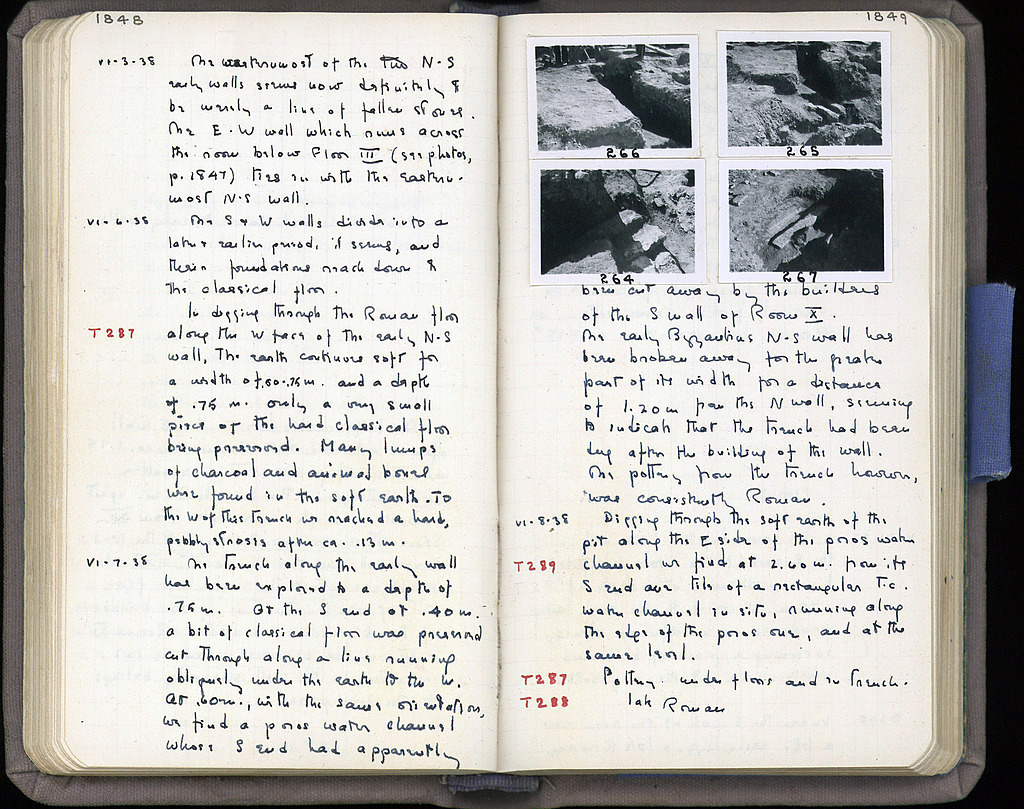 1848
VI-3-38 The westernmost of the two N-S
early walls seems now definitely to
be merely a line of fallen stones.
The E-W wall which runs across
the room below Floor III (see photos,
p. 1847) ties in with the eastern-
most N-S wall.
VI-6-38 The S & W walls divide into a
later & earlier period, it seems, and
their foundations reach down to
the classical floor.
In digging through the Roman floor
T287 along the W face of the early N-S
wall, the earth continues soft for
a width of .60-.75 m. and a depth
of .75 m. only a very small
piece of the hard classical floor
being preserved. Many lumps
of charcoal and animal bones
were found in the soft earth. To
the W of this trench we reached a hard,
pebbly strosis after ca. .13 m.
VI-7-38 The trench along the early wall
has been explored to a depth of
.75 m. At the S end at .40 m.
a bit of classical floor was preserved
cut through along a line running
obliquely under the earth to the W.
At .60 m., with the same orientation,
we find a poros water channel
whose S end had apparently
1849
266
265
264
267
been cut away by the builders
of the S wall of Room X.
The early Byzantine N-S wall has
been broken away for the greater
part of its width for a distance
of 1.20 m from the N wall, seeming
to indicate that the trench had been
dug after the building of the wall.
The pottery from the trench however,
was consistently Roman.
VI-8-38 Digging through the soft earth of the
pit along the E side of the poros water
T289 channel we find at 2.60 m. from its
S end one tile of a rectangular T.C.
water channel in situ, running along
the edge of the poros one, and at the
same level.
T287 Pottery under floor and in trench.
T288 late Roman